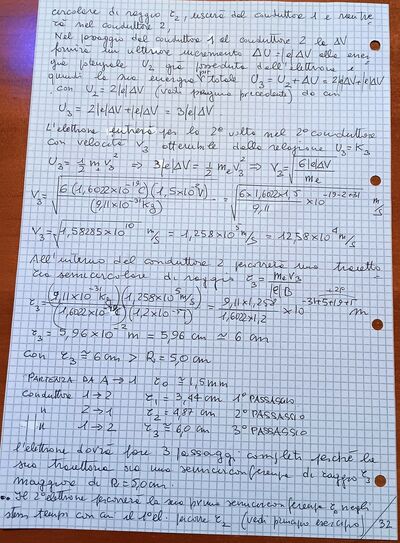 circolare di raggio r₂, uscirà dal conduttore 1 e rientre
rà nel conduttore 2.
Nel passaggio dal conduttore 1 al conduttore 2 la ΔV
fornirà un ulteriore incremento ΔU = |e|ΔV alla ener
gia potenziale U₂ già posseduta dall'elettrone e
quindi la sua energia pot. totale U₃ = U₂ + ΔU = 2|e|ΔV + |e|ΔV
con U₂ = 2|e|ΔV (vedi pagina precedente) da cui
U₃ = 2|e|ΔV + |e|ΔV = 3|e|ΔV
L'elettrone entrerà per la 2ª volta nel 2º conduttore
con velocità v₃ ottenibile dalla relazione U₃ = K₃
U₃ = 1/2 m v₃² ⇒ 3|e|ΔV = 1/2 mₑ v₃² ⇒ V₃ = √(6|e|ΔV / mₑ)
V₃ = √(6 (1,6022×10⁻¹⁹C)(1,5×10⁻²V) / (9,11×10⁻³¹Kg)) = √(6×1,6022×1,5 / 9,11 ×10⁻¹⁹⁻²⁺³¹) m/s
V₃ = √(1,58285×10¹⁰) m/s = 1,258×10⁵ m/s = 12,58×10⁴ m/s
All'interno del conduttore 2 percorrerà una traietto
ria semicircolare di raggio r₃ = mₑv₃ / |e|B
r₃ = (9,11×10⁻³¹Kg)(1,258×10⁵ m/s) / (1,6022×10⁻¹⁹C)(1,2×10⁻⁵T) = 9,11×1,258 / 1,6022×1,2 ×10⁻³¹⁺⁵⁺¹⁹⁺⁵ m
r₃ = 5,96×10⁻² m = 5,96 cm ≅ 6 cm
con r₃ ≅ 6 cm > R = 5,0 cm
PARTENZA DA A → 1 r₀ ≅ 1,5 mm
conduttore 1→2 r₁ = 3,44 cm 1º PASSAGGIO
" 2→1 r₂ = 4,87 cm 2º PASSAGGIO
" 1→2 r₃ = 6,0 cm 3º PASSAGGIO
L'elettrone dovrà fare 3 passaggi completi perché la
sua traiettoria sia una semicirconferenza di raggio r₃
maggiore di R = 5,0 cm.
•• Il 2º elettrone percorrerà la sua prima semicirconferenza r₁ negli
stessi tempi con cui il 1º el. percorre r₂ (vedi principio esercizio) 32